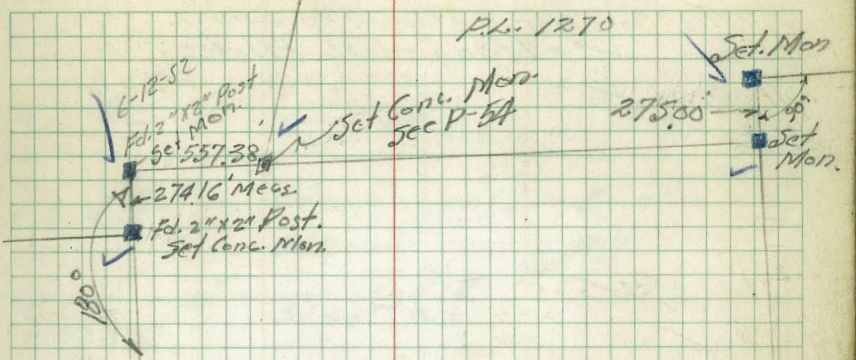 P.L. 1270
6-12-52
Fd. 2"x2" Post
Set Mon.
557.38
Set Conc. Mon.
See P-54
274.16' Meas.
Fd. 2"x2" Post.
Set Conc. Mon.
180°
Set. Mon
275.00'
90°
Set
Mon.